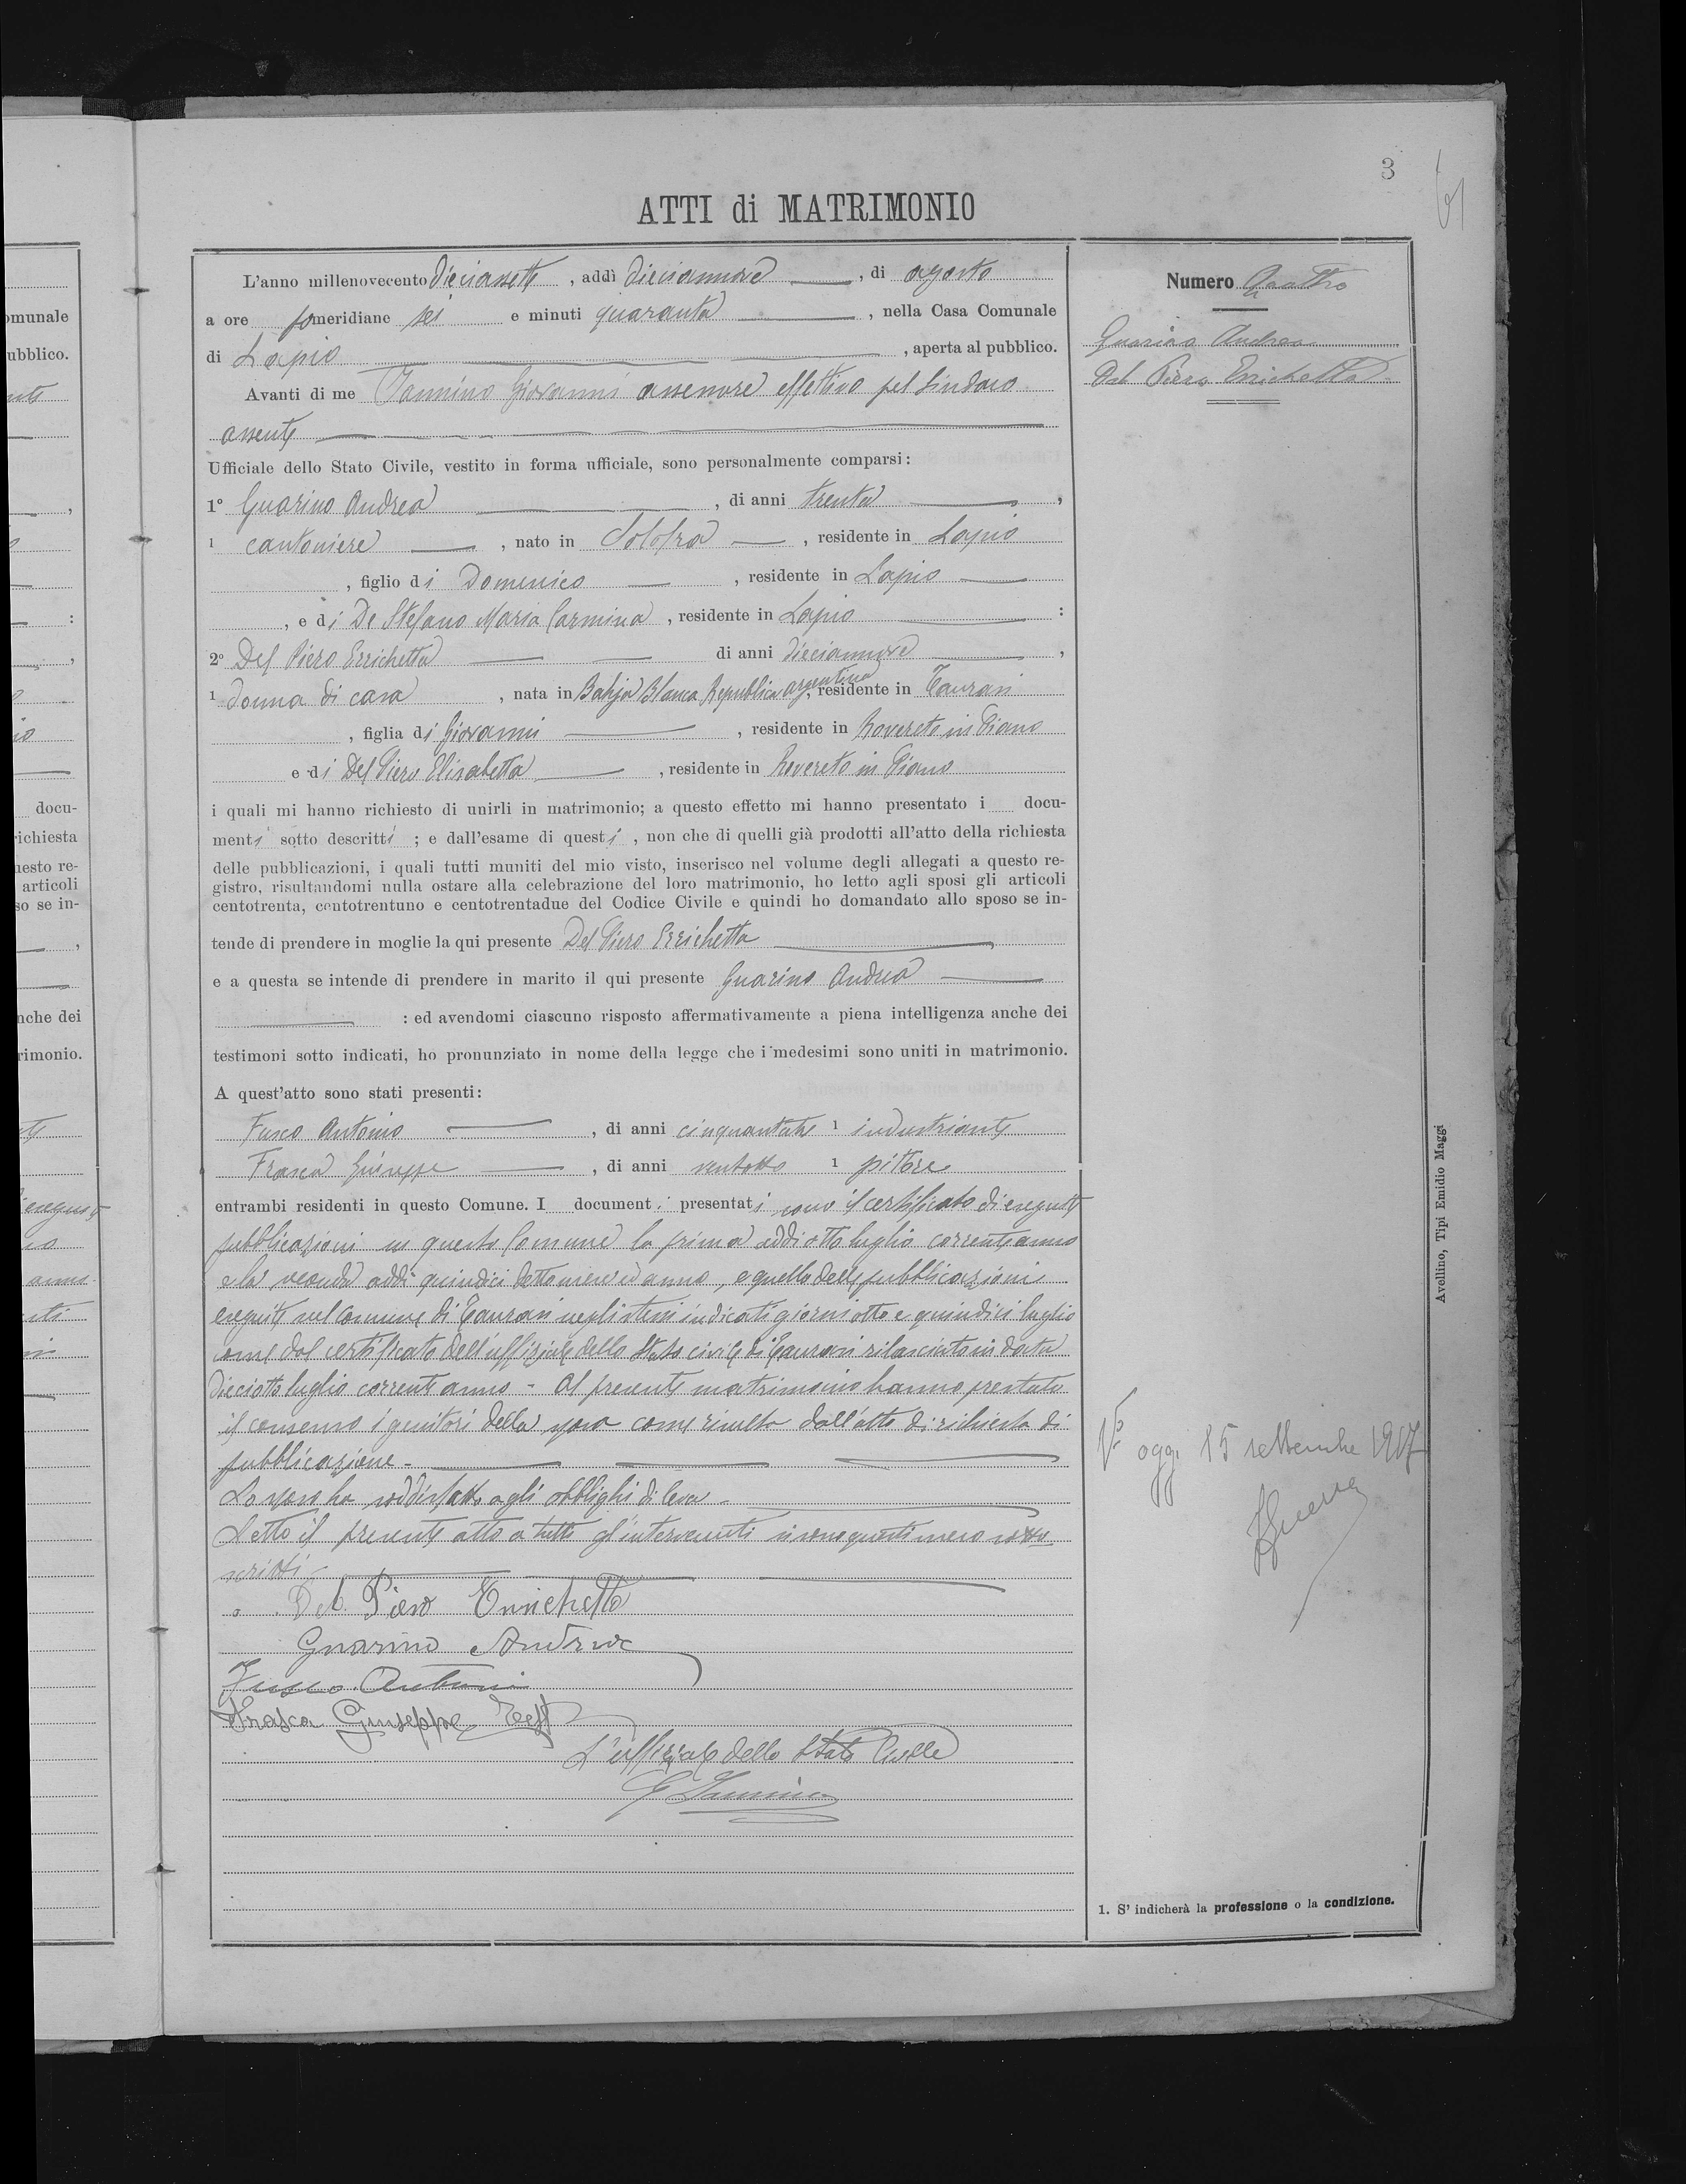 3
61
ATTI di MATRIMONIO
L'anno millenovecento diciassette, addì diciannove, di agosto
a ore pomeridiane sei e minuti quaranta, nella Casa Comunale
di Lapio, aperta al pubblico.
Avanti di me Iannino Giovanni assessore effettivo pel Sindaco
assente
Ufficiale dello Stato Civile, vestito in forma ufficiale, sono personalmente comparsi:
1° Guarino Andrea, di anni trenta,
1 cantoniere, nato in Solofra, residente in Lapio
, figlio di Domenico, residente in Lapio
, e di De Stefano Maria Carmina, residente in Lapio :
2° Del Piero Errichetta di anni diciannove,
1 donna di casa, nata in Bahja Blanca Republica argentina, residente in Taurasi
, figlia di Giovanni, residente in Rovereto in Piano
e di Del Piero Elisabetta, residente in Rovereto in Piano
i quali mi hanno richiesto di unirli in matrimonio; a questo effetto mi hanno presentato i docu-
menti sotto descritti ; e dall'esame di questi , non che di quelli già prodotti all'atto della richiesta
delle pubblicazioni, i quali tutti muniti del mio visto, inserisco nel volume degli allegati a questo re-
gistro, risultandomi nulla ostare alla celebrazione del loro matrimonio, ho letto agli sposi gli articoli
centotrenta, centotrentuno e centotrentadue del Codice Civile e quindi ho domandato allo sposo se in-
tende di prendere in moglie la qui presente Del Piero Errichetta
e a questa se intende di prendere in marito il qui presente Guarino Andrea
: ed avendomi ciascuno risposto affermativamente a piena intelligenza anche dei
testimoni sotto indicati, ho pronunziato in nome della legge che i medesimi sono uniti in matrimonio.
A quest'atto sono stati presenti:
Fusco Antonio, di anni cinquantatre 1 industriante
Frasca Giuseppe, di anni ventotto 1 pittore
entrambi residenti in questo Comune. I documenti presentati sono il certificato di eseguite
pubblicazioni in questo Comune la prima addì otto luglio corrente anno
e la seconda addì quindici detto mese ed anno, e quello delle pubblicazioni
eseguite nel comune di Taurasi negli stessi indicati giorni otto e quindici luglio
come dal certificato dell'uffiziale dello Stato civile di Taurasi rilasciato in data
dieciotto luglio corrente anno - Al presente matrimonio hanno prestato
il consenso i genitori della sposa come risulta dall'atto di richiesta di
pubblicazione -
Lo sposo ha soddisfatto agli obblighi di leva -
Letto il presente atto a tutti gl'intervenuti si sono questi meco sotto
scritti -
Del Piero Errichetta
Guarino Andrea
Fusco Antonio
Frasca Giuseppe Test
L'uffiziale dello Stato Civile
G Iannino
Numero Quattro
Guarino Andrea
Del Piero Errichetta
oggi 15 settembre 1917
1. S' indicherà la professione o la condizione.
Avellino, Tipi Emidio Maggi